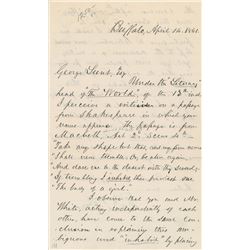 Buffalo, April 14, 1861.
George Lunt, Esq
Under the "Literary"
head of "The World", of the 13th inst
I perceive a criticism on a passage
from Shakespeare in which your
name appears. The passage is from
Macbeth, Act 2d Scene 4th
Take any shape but that, and my firm nerves
Shall never tremble, Or, be alive again
And dare me to the desert with thy sword;
If trembling I inhabit then, protest me
"The baby of a girl."
I observe that you and Mr.
White, acting independently of each
other, have come to the same con-
clusion in explaining this am-
biguous word "inhabit" by placing